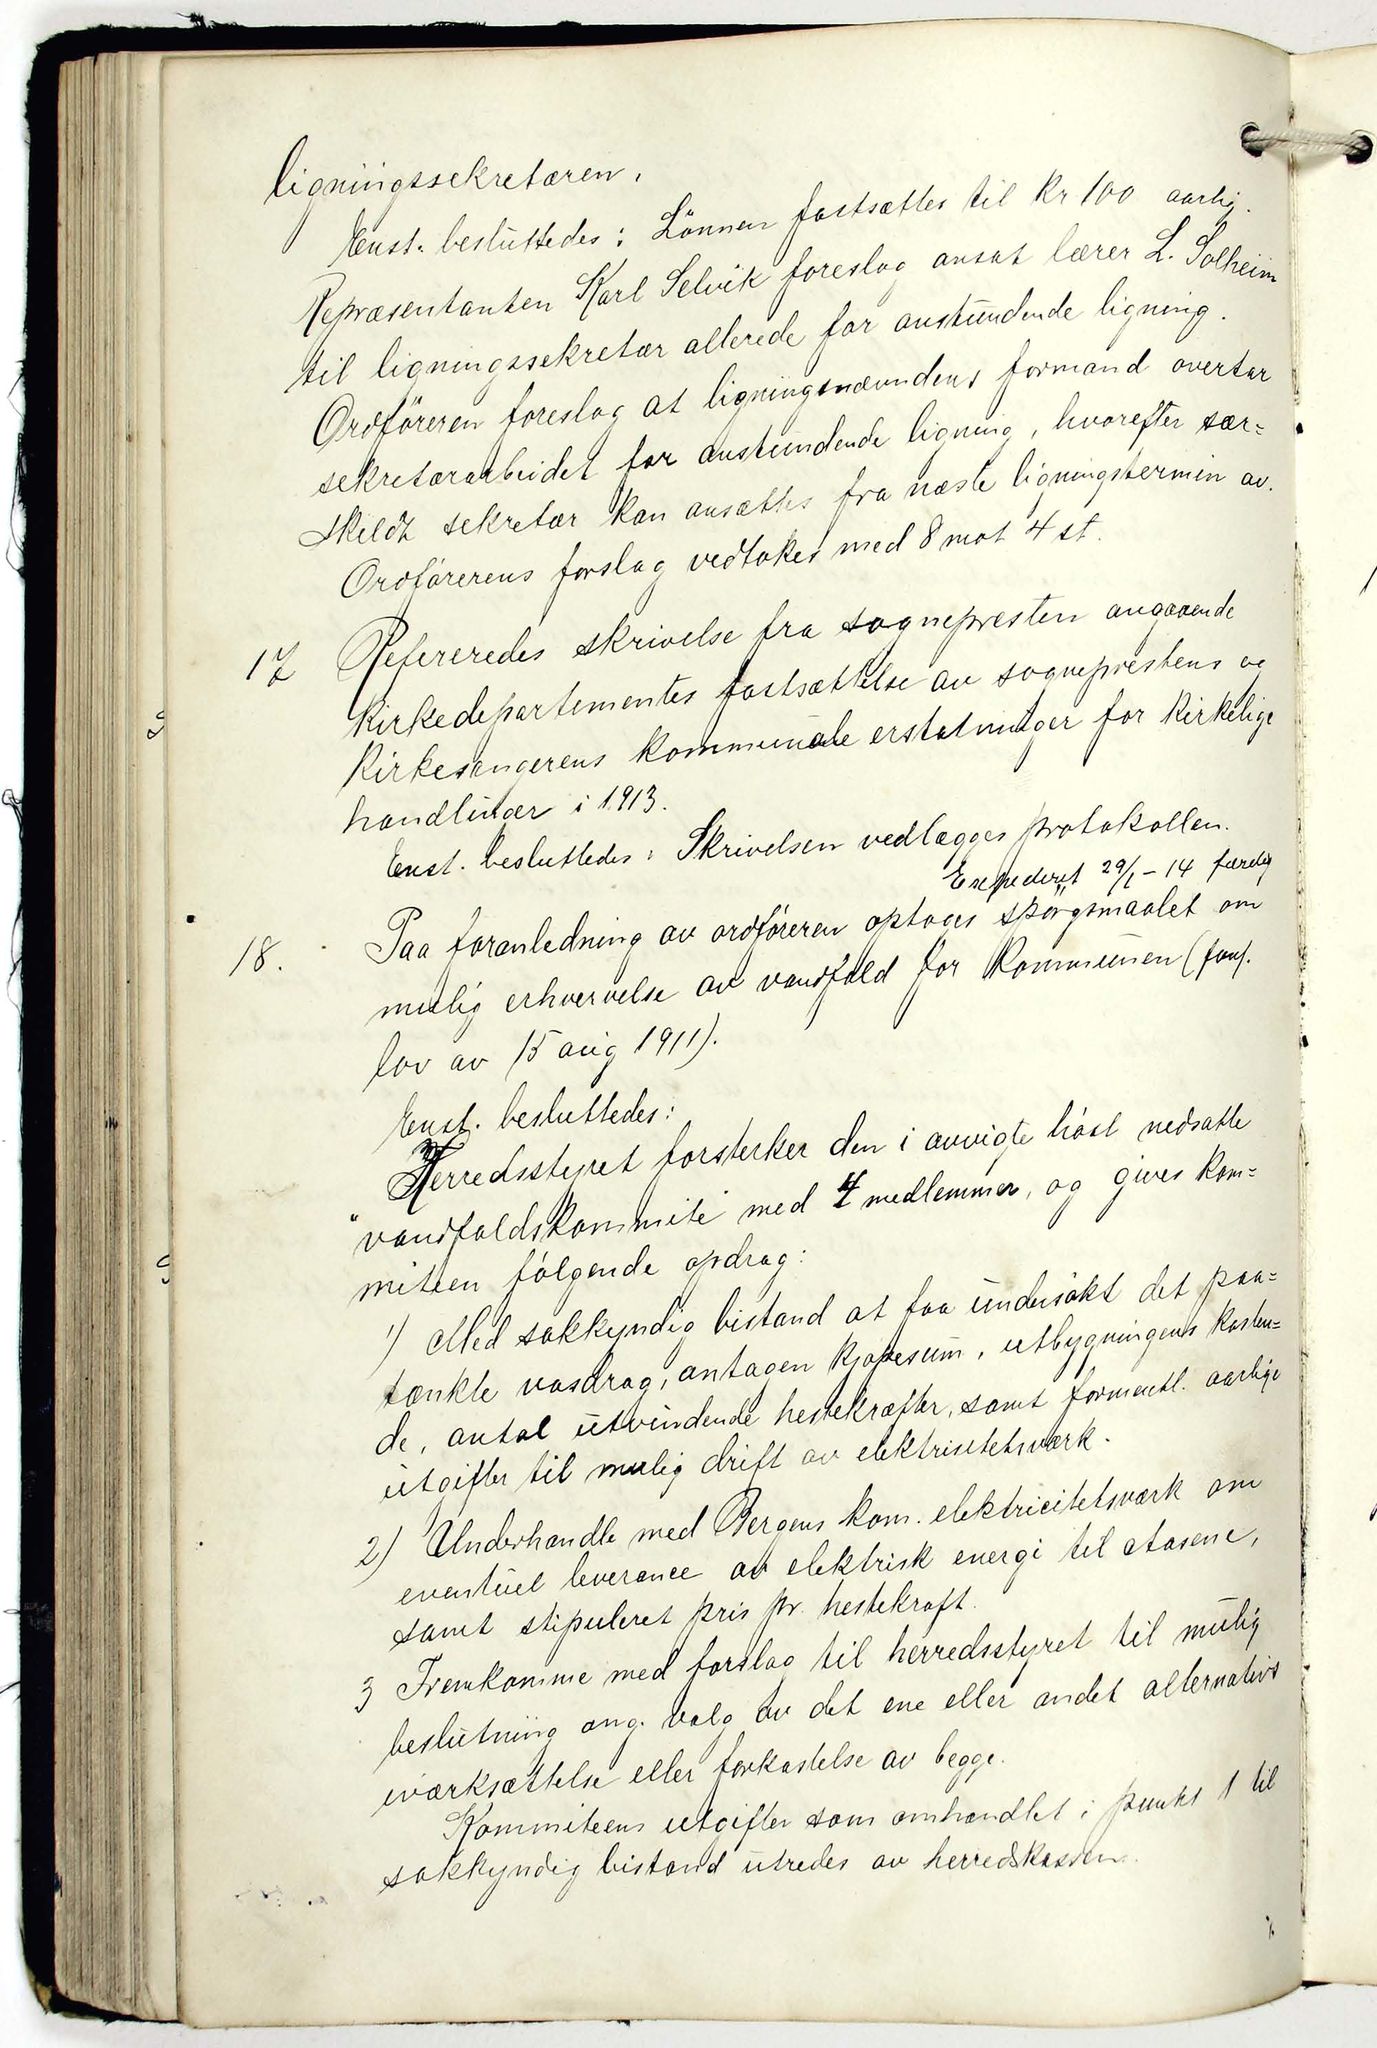 ligningssekretæren.
Enst. besluttedes: Lönnen fastsættes til kr 100 aarlig.
Repræsentanten Karl Selvik foreslog ansat lærer L. Solheim
til ligningssekretær allerede for anstundende ligning.
Ordföreren foreslog at ligningsnævndens formand overtar
sekretærarbeidet for anstundende ligning, hvorefter sær=
skildt sekretær kan ansættes fra næste ligningstermin av.
Ordförerens forslag vedtokes med 8 mot 4 st.
17 Refereredes skrivelse fra sognepresten angaaende
kirkedepartementes fastsættelse av sogneprestens og
kirkesangerens kommunale erstatninger for kirkelige
handlinger i 1913.
Enst. besluttedes: Skrivelsen vedlægges protokollen.
Expederet 29/1-14 færdig
18. Paa foranledning av ordföreren optoges spörgsmaalet om
mulig erhvervelse av vandfald for kommunen (janf.
lov av 15 aug 1911).
Enst. besluttedes:
Herredsstyret forsterker den i avvigte höst nedsatte
"vandfaldskommite med 4 medlemmer, og gives kom=
miteen fölgende opdrag:
1) Med sakkyndig bistand at faa undersökt det paa=
tænkte vasdrag, antagen kjöpesum, utbygningens kosten=
de, antal utvindende hestekræfter, samt formentl. aarlige
utgifter til mulig drift av elektrisitetsværk.
2) Underhandle med Bergens kom. elektricitetsværk om
eventuel leverance av elektrisk energi til Aasene,
samt stipuleret pris pr. hestekraft.
3 Fremkomme med forslag til herredsstyret til mulig
beslutning ang. valg av det ene eller andet alternativs
iværksættelse eller forkastelse av begge.
Kommiteens utgifter som omhandlet i punkt 1 til
sakkyndig bistand utredes av herredskassen.
%